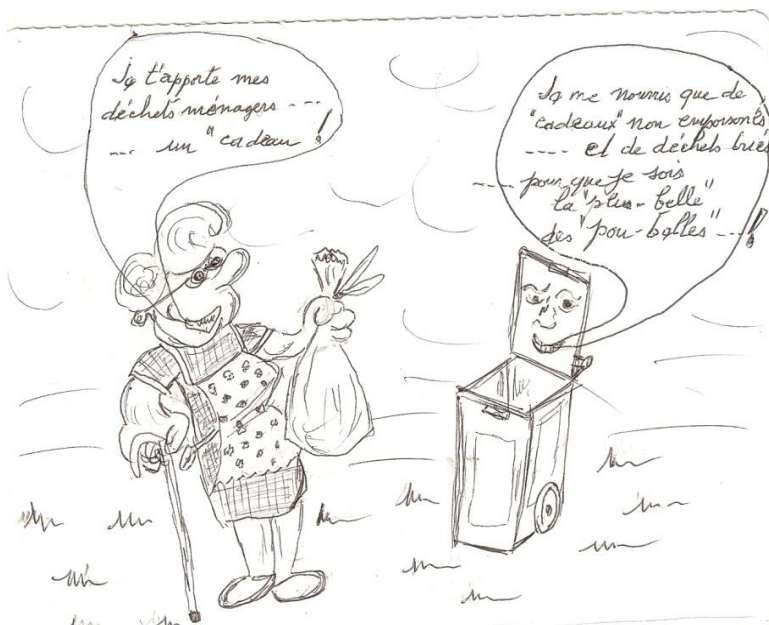 Je t'apporte mes
déchets ménagers ---
---- un "cadeau !
Je me nourris que de
"cadeaux" non empoisonés
---- et de déchets triés
--- pour que je sois
la "plus-belle"
des "pou-belles" ---!